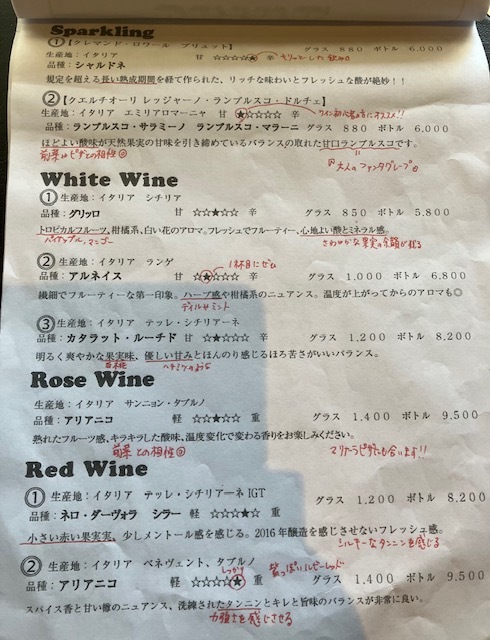 Sparkling
①【クレマンド・ロワール ブリュット】 グラス 880 ボトル 6.000
生産地：イタリア 甘 ☆☆☆☆★ 辛 キリッとした飲み口
品種：シャルドネ
規定を超える長い熟成期間を経て作られた、リッチな味わいとフレッシュな酸が絶妙！！
②【クエルチオーリ レッジャーノ・ランブルスコ・ドルチェ】
生産地：イタリア エミリアロマーニャ 甘 ★☆☆☆☆ 辛 ワイン初心者の方にオススメ!!
品種：ランブルスコ・サラミーノ ランブルスコ・マラーニ グラス 880 ボトル 6.000
ほどよい酸味が天然果実の甘味を引き締めているバランスの取れた甘口ランブルスコです。
前菜やピザとの相性◎ 『大人のファンタグレープ』
White Wine
①生産地：イタリア シチリア
品種：グリッロ 甘 ☆☆★☆☆ 辛 グラス 850 ボトル 5.800
トロピカルフルーツ、柑橘系、白い花のアロマ。フレッシュでフルーティー、心地よい酸とミネラル感。
パイナップル、マンゴー さわやかな果実の余韻が残る
②生産地：イタリア ランゲ 1杯目にぜひ
品種：アルネイス 甘 ☆★☆☆☆ 辛 グラス 1.000 ボトル 6.800
繊細でフルーティーな第一印象。ハーブ感や柑橘系のニュアンス。温度が上がってからのアロマも◎
ディルやミント
③生産地：イタリア テッレ・シチリアーネ
品種：カタラット・ルーチド 甘 ☆★☆☆☆ 辛 グラス 1.200 ボトル 8.200
明るく爽やかな果実味、優しい甘みとほんのり感じるほろ苦さがいいバランス。
白桃 ハチミツのよう
Rose Wine
生産地：イタリア サンニョン・タブルノ
品種：アリアニコ 軽 ☆☆★☆☆ 重 グラス 1.400 ボトル 9.500
熟れたフルーツ感、キラキラした酸味、温度変化で変わる香りをお楽しみください。
前菜との相性◎ マリナーラピザにも合います!!
Red Wine
①生産地：イタリア テッレ・シチリアーネ IGT グラス 1.200 ボトル 8.200
品種：ネロ・ダーヴォラ シラー 軽 ☆☆☆★☆ 重
小さい赤い果実実、少しメントール感を感じる。2016年醸造を感じさせないフレッシュ感。
シルキーなタンニンも感じる
②生産地：イタリア ベネヴェント、タブルノ しっかり 紫っぽいルビーレッド
品種：アリアニコ 軽 ☆☆☆☆★ 重 グラス 1.400 ボトル 9.500
スパイス香と甘い樽のニュアンス、洗練されたタンニンとキレと旨味のバランスが非常に良い。
力強さを感じさせる